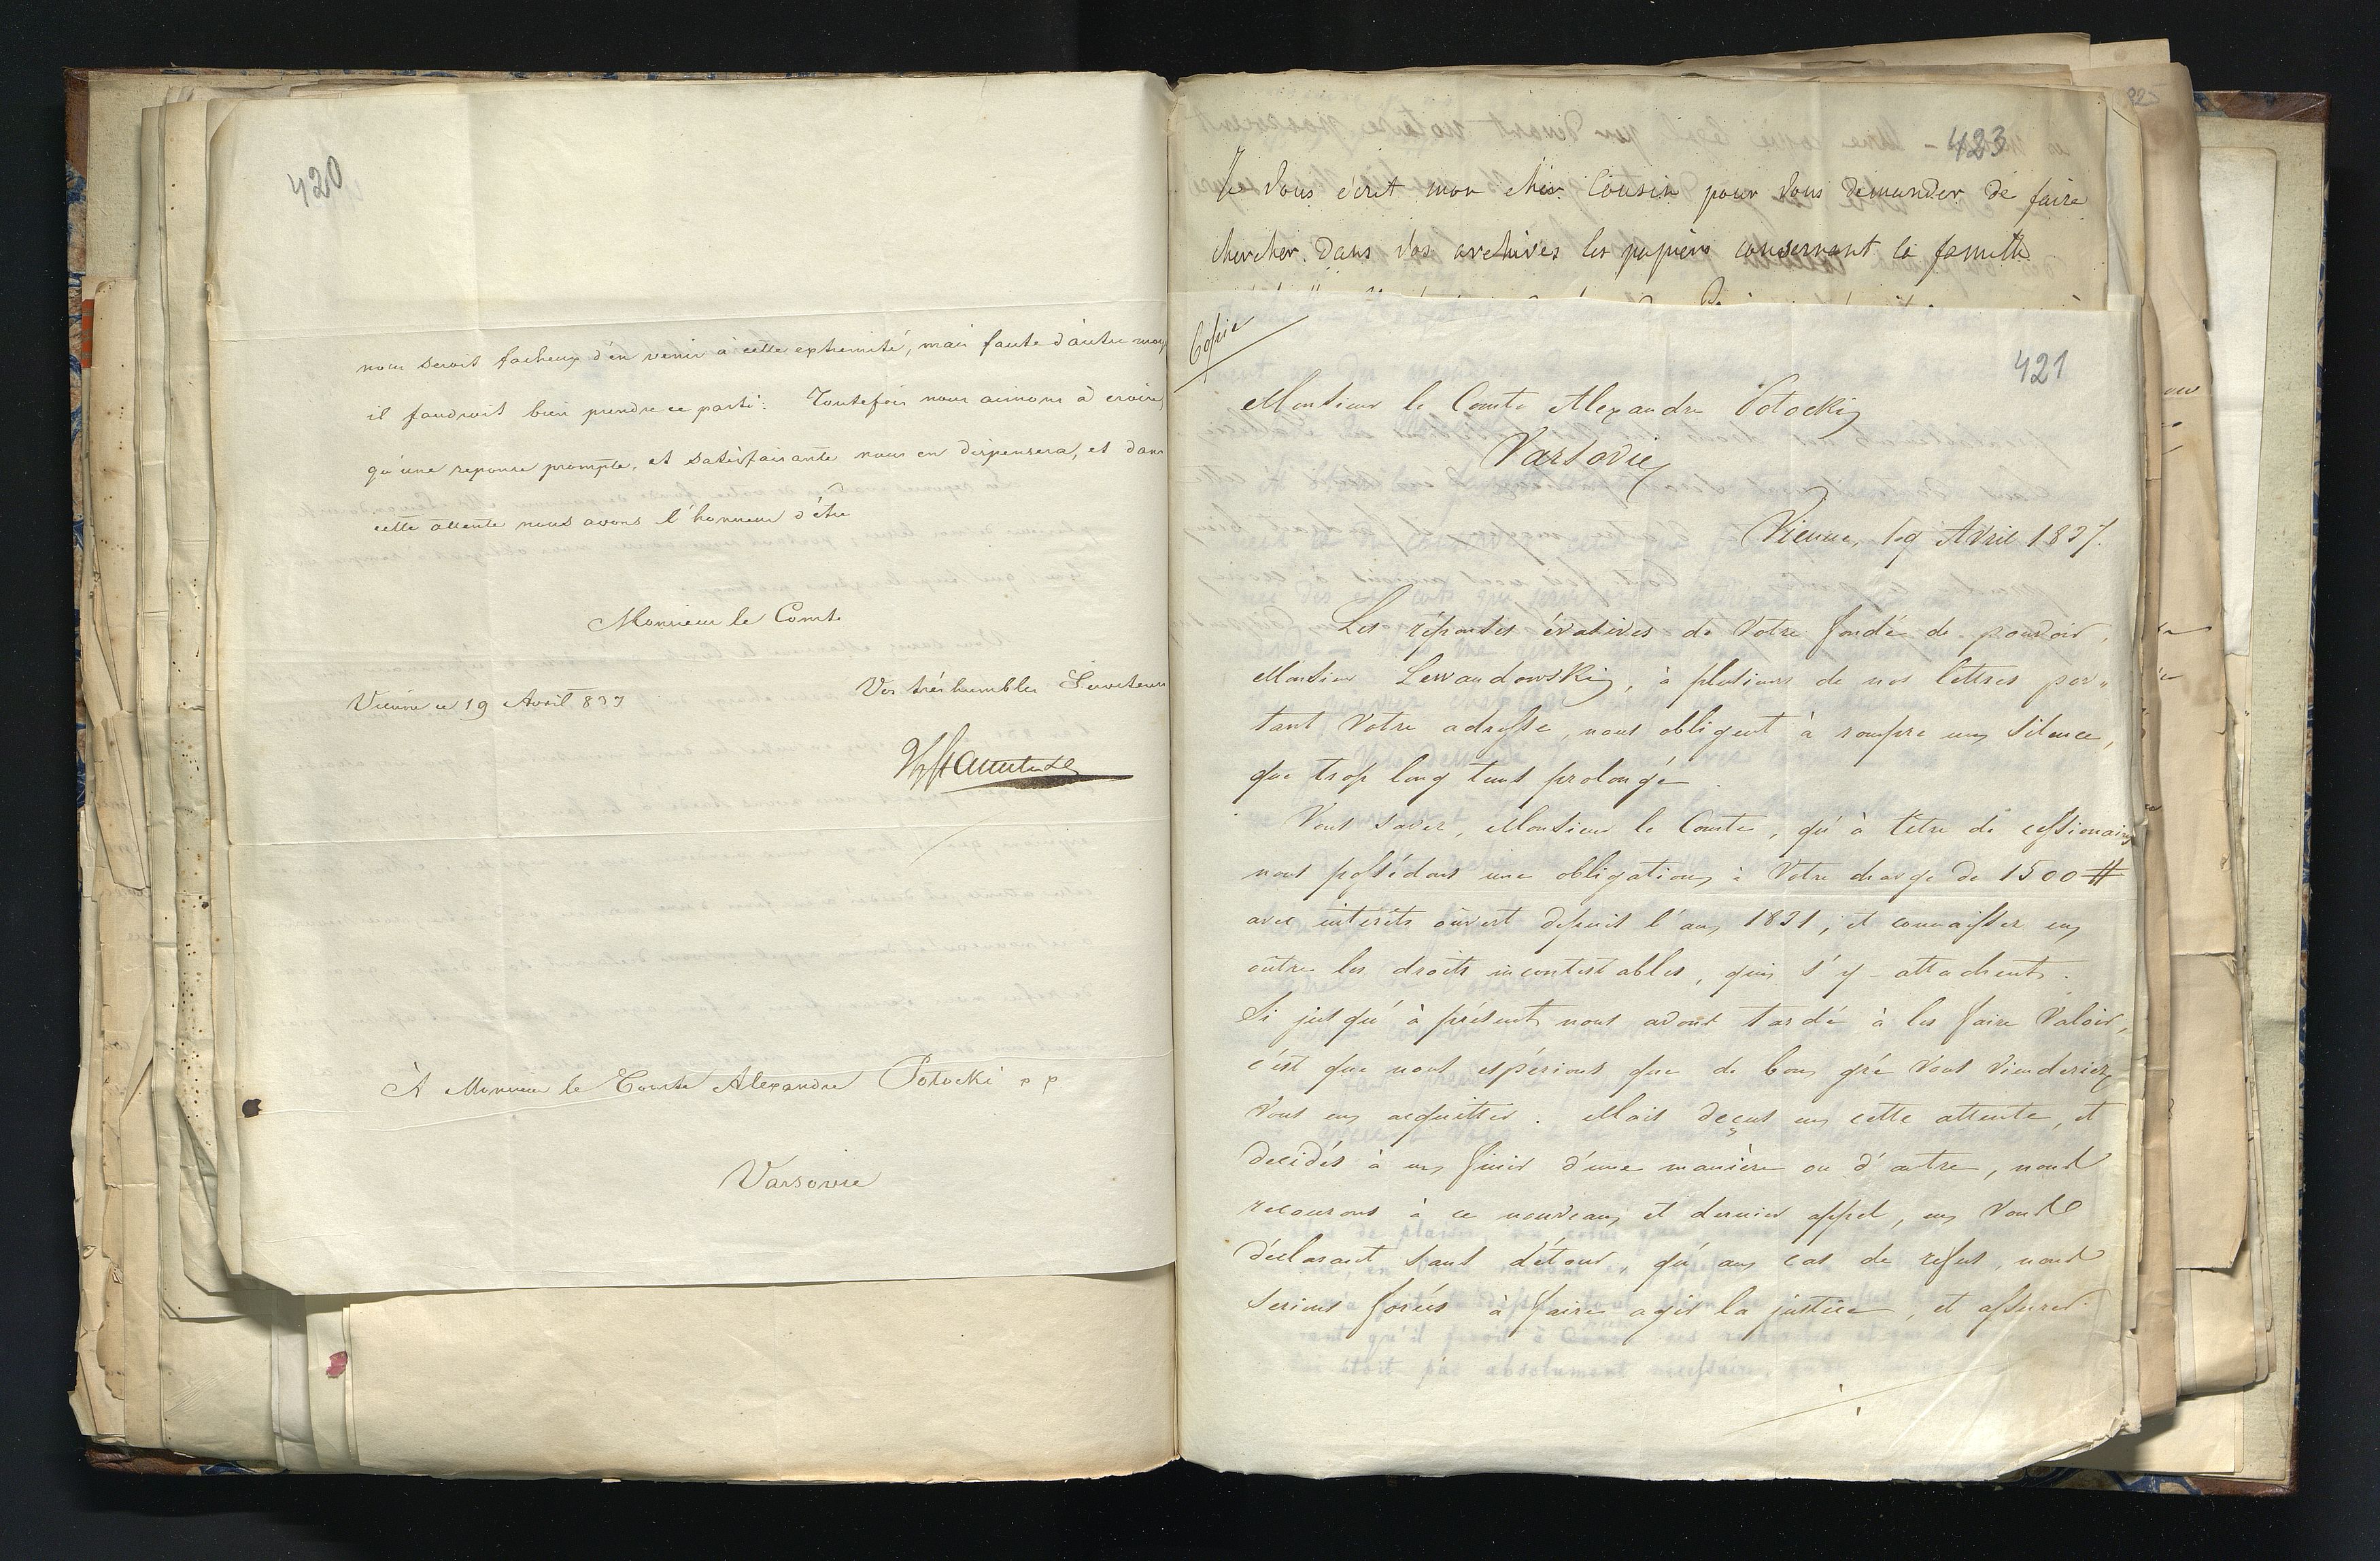 420
nous seroit facheux d'en venir à cette extremité, mais faute d'autre moy
il faudroit bien prendre ce parti. Toutefois nous aimons à croire,
qu'une reponse prompte, et satisfaisante nous en dispensera, et dans
cette attente nous avons l'honneur d'être
Monsieur le Comte
Vos très humbles Serviteurs
Vienne ce 19 Avril 837
À Monsieur le Comte Alexandre Potocki p p
Varsovie
423
Je vous écrit mon cher Cousin pour vous demander de faire
chercher dans vos archives les papiers consernant la famille
Copie
421
Monsieur le Comte Alexandre Potocki
Varsovie
Vienne, 19 Avril 1837.
Les réponses évasives de Votre fondé de pouvoir,
Monsieur Lewandowski, à plusieurs de nos lettres por„
tant Votre adresse, nous obligent à rompre un silence,
que trop long tems prolongé.
Vous savez, Monsieur le Comte, qu'à titre de cessionaires
nous possédons une obligation à Votre charge de 1500 #
avec intérêts ouvert depuis l'an 1831, et connaissez en
outre les droits incontestables, qui s'y attachent.
Si jusqu'à présent nous avons tardé à les faire valoir,
c'est que nous espérions que de bon gré Vous vienderiez
Vous en acquitter. Mais deçus en cette attente, et
decidés à en finir d'une manière ou d'autre, nous
recourons à ce nouveau et dernier appel, en Vous
déclarant sans détour, qu'au cas de refus, nous
serions forcés à faire agir la justice, et assurer